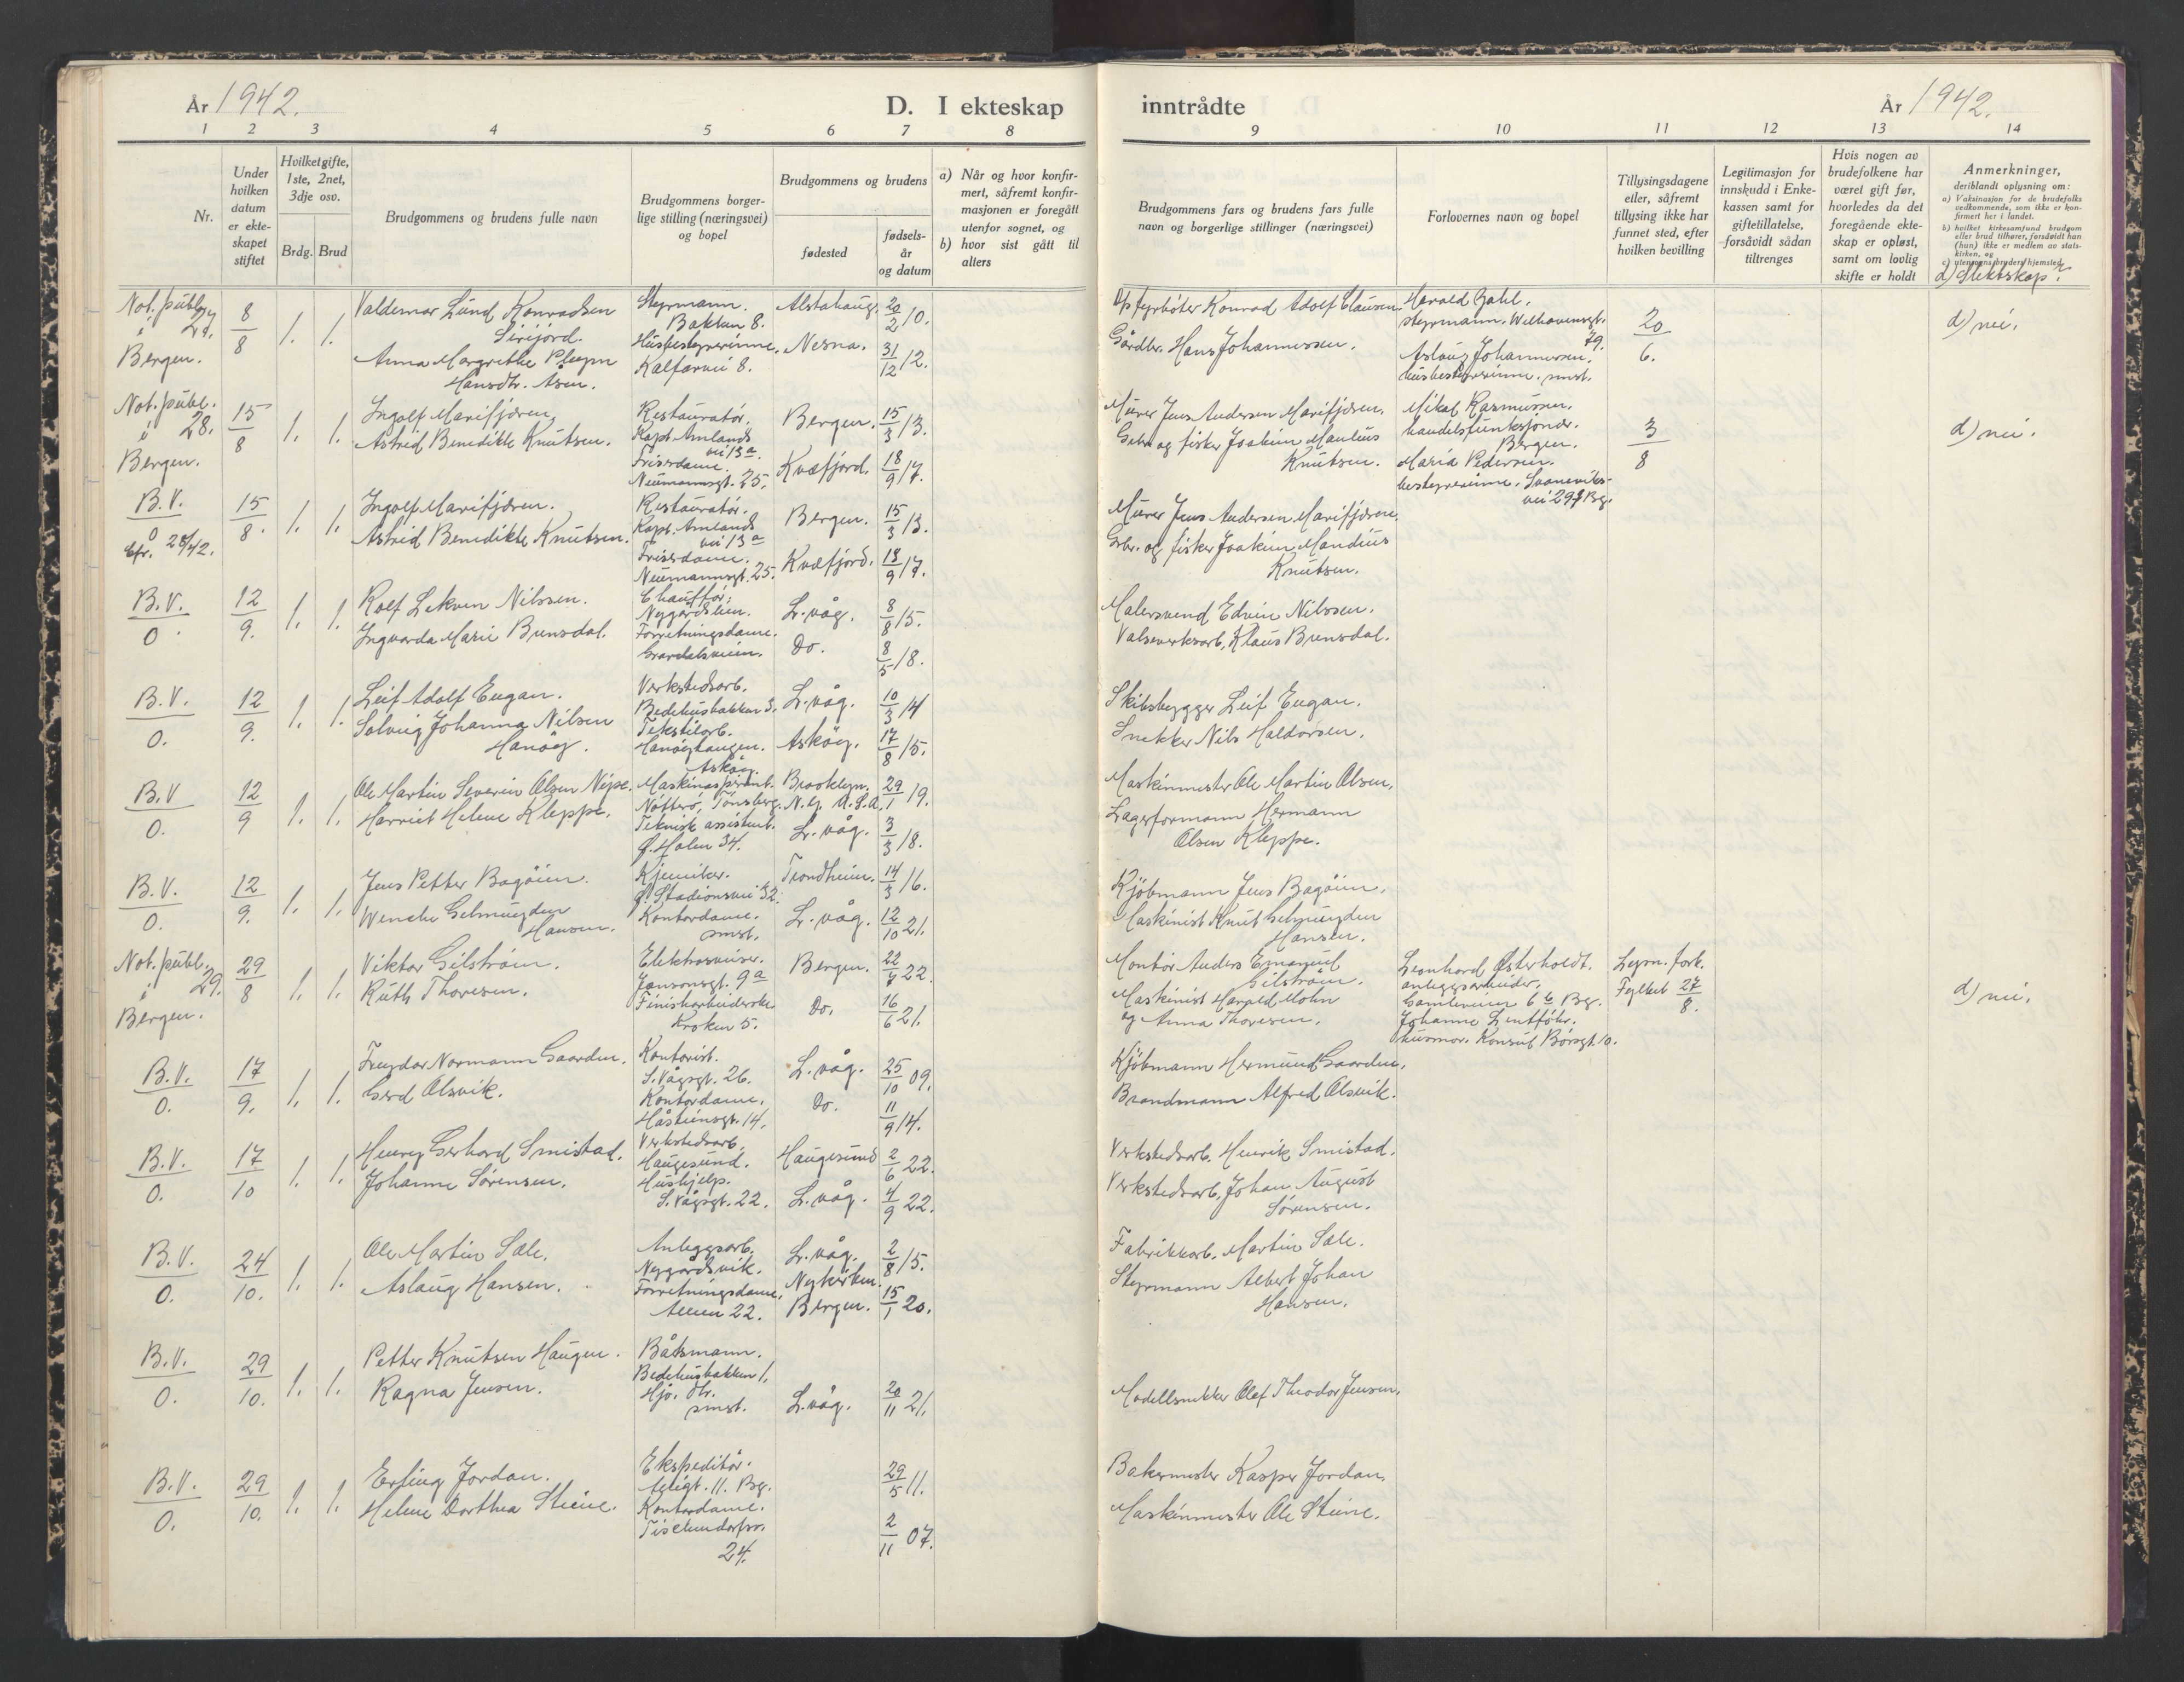 År 1942.
D. I ekteskap
inntrådte
År 1942.
1 2 3 4 5 6 7 8 9 10 11 12 13 14
Nr.
Under hvilken datum er ekteskapet stiftet
Hvilket gifte, 1ste, 2net, 3dje osv.
Brdg. Brud
Brudgommens og brudens fulle navn
Brudgommens borgerlige stilling (næringsvei) og bopel
Brudgommens og brudens
fødested
fødselsår og datum
a) Når og hvor konfirmert, såfremt konfirmasjonen er foregått utenfor sognet, og
b) hvor sist gått til alters
Brudgommens fars og brudens fars fulle navn og borgerlige stillinger (næringsvei)
Forlovernes navn og bopel
Tillysingsdagene eller, såfremt tillysing ikke har funnet sted, efter hvilken bevilling
Legitimasjon for innskudd i Enkekassen samt for giftetillatelse, forsåvidt sådan tiltrenges
Hvis nogen av brudefolkene har været gift før, hvorledes da det foregående ekteskap er opløst, samt om lovlig skifte er holdt
Anmerkninger,
deriblandt oplysning om:
a) Vaksinasjon for de brudefolks vedkommende, som ikke er konfirmert her i landet.
b) hvilket kirkesamfund brudgom eller brud tilhører, forsåvidt han (hun) ikke er medlem av statskirken, og
d) Slektskap?
Not. publ. i Bergen. 27.
8/8 1. 1.
Valdemar Lund Konradsen
Sirijord.
Anna Margrethe
Hansdtr. Åsen.
Styrmann.
Bakken 8.
Husbestyrerinne.
Kalfarvei 8.
Alstahaug. 20/2 10.
Nesna. 31/12 12.
Konrad Adolf Clausen.
Gårdbr. Hans Johannessen.
Harald Zahl,
styrmann. Welhavensgt. 79.
Aslaug Johannessen,
husbestyrerinne. smst.
20/6.
d) nei.
Not. publ. i Bergen. 28.
15/8 1. 1.
Ingolf Marifjæren,
Astrid Benedikte Knutsen.
Restauratør.
Kapt. Amlands vei 13a.
Frisørdame.
Neumannsgt. 25.
Bergen. 15/3 13.
Kvæfjord. 18/9 17.
Murer Jens Andersen Marifjæren.
Gbr. og fisker Joakim Mandius
Knutsen.
Mikal Rasmussen.
handelsfunksjonær.
Bergen.
Maria Pedersen.
bestyrerinne. Svaneviks-
vei 29 Bg.
3/8
d) nei.
B.V.
0 Cfr. 28/42.
15/8. 1. 1.
Ingolf Marifjæren.
Astrid Benedikte Knutsen.
Restauratør.
Kapt. Amlands vei 13a
Frisørdame.
Neumannsgt. 25.
Bergen. 15/3 13.
Kvæfjord. 18/9 17.
Murer Jens Andersen Marifjæren.
Gbr. og fisker Joakim Mandius
Knutsen.
B.V.
0.
12/9. 1. 1.
Rolf Lekven Nilssen.
Ingvarda Marie Brunsdal.
Chauffør.
Nygårdslien.
Forretningsdame.
Gravdalsveien.
L. våg. 8/8 15.
Do. 8/5 18.
Malersvend Edvin Nilssen.
Valseverksarb. Klaus Brunsdal.
B.V.
0.
12/9. 1. 1.
Leif Adolf Eugan.
Solveig Johanna Nilsen
Hanøy.
Verkstedsarb.
Bedehusbakken 3.
Tekstilarb.
Hanøyhaugen.
Askøy.
L. våg. 10/3 14
Askøy. 17/8 15.
Skibsbygger Leif Eugan.
Snekker Nils Haldorsen.
B.V
0.
12/9 1. 1.
Ole Martin Severin Olsen Nipe.
Harriet Helene Kleppe.
Maskinaspirant.
Nøtterø, Tønsberg.
Teknisk assistent.
Ø. Holen 34.
Brooklyn, N.Y. U.S.A. 29/1 19.
L. våg. 3/3 18.
Maskinmester Ole Martin Olsen,
Lagerformann Hermann
Olsen Kleppe.
B.V.
0.
12/9. 1. 1.
Jens Petter Bagøien.
Wenche Gelmuyden
Hansen.
Kjemiker.
Ø. Stadionsvei 32.
Kontordame.
smst.
Trondheim. 14/3 16.
L. våg. 12/10 21.
Kjøbmann Jens Bagøien.
Maskinist Knut Gelmuyden
Hansen.
Not. publ. i Bergen. 29.
29/8 1. 1.
Viktor Gilstrøm.
Ruth Thoresen.
Elektrosveiser.
Jansonsgt. 9a
Finiskarbeiderske
Kroken 5.
Bergen. 22/7 22.
Do. 16/6 21.
Montør Anders Emanuel
Gilstrøm.
Maskinist Harald Mohn
og Anna Thoresen.
Leonhard Østerholdt.
anleggsarbeider,
Gamleveien 6b Bg.
Johanne Lentføhr.
husmor. Konsul Børsgt. 10.
Lysn. fork.
Fylket 27/8.
d) nei.
B.V.
0.
17/9. 1. 1.
Freydar Normann Gaarden.
Gerd Olsvik.
Kontorist.
S. Vågsgt. 26.
Kontordame.
Håsteinsgt. 14.
L. våg. 25/10 09.
Do. 11/9 14.
Kjøbmann Hermund Gaarden.
Brandmann Alfred Olsvik.
B.V.
0.
17/10 1. 1.
Henry Gerhard Smistad.
Johanne Sørensen.
Verkstedsarb.
Haugesund.
Hushjelp.
S. Vågsgt. 22.
Haugesund 2/6 22.
L. våg. 4/9 22.
Verkstedsarb. Henrik Smistad.
Verkstedsarb. Johan August
Sørensen.
B.V.
0.
24/10. 1. 1.
Ole Martin Sæle.
Aslaug Hansen.
Anleggsarb.
Nygårdsvik.
Forretningsdame.
Alleen 22.
L. våg. 2/8 15.
Nykirken.
Bergen. 15/1 20.
Fabrikkarb. Martin Sæle.
Styrmann Albert Johan
Hansen.
B.V.
0.
29/10. 1. 1.
Petter Knutsen Haugen.
Ragna Jensen.
Båtsmann.
Bedehusbakken 1.
Hjv. dtr.
smst.
L. våg. 20/11 21.
Modellsnekker Olaf Theodor Jensen.
B.V.
0.
29/10. 1. 1.
Erling Jordan.
Helene Dorthea Steine.
Ekspeditør.
11. Bg.
Kontordame.
24.
29/5 11.
2/11 07.
Bakermester Kasper Jordan.
Maskinmester Ole Steine.